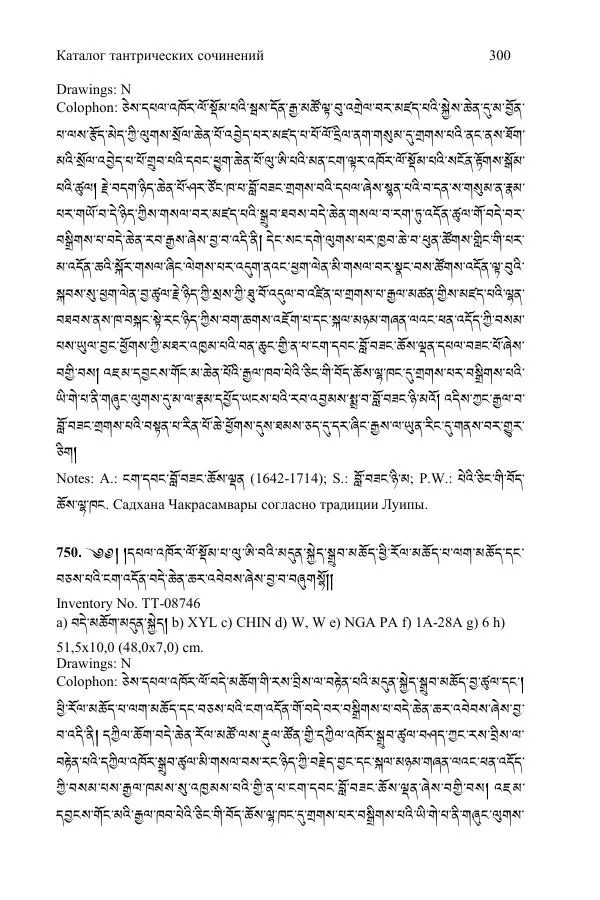 Каталог тантрических сочинений 300
Drawings: N
Colophon: ཅེས་དཔལ་འཁོར་ལོ་སྡོམ་པའི་སྦས་དོན་རྒྱ་མཚོ་ལྟ་བུ་འགྲེལ་བར་མཛད་པའི་སྐྱེས་ཆེན་དུ་མ་བྱོན་
པ་ལས་རྩོད་མེད་ཀྱི་ལུགས་སྲོལ་ཆེན་པོ་འབྱེད་པར་མཛད་པ་པོ་ལོ་དྲིལ་ནག་གསུམ་དུ་གྲགས་པའི་ནང་ནས་ཐོག་
མའི་སྲོལ་འབྱེད་པ་པོ་གྲུབ་པའི་དབང་ཕྱུག་ཆེན་པོ་ལུ་ཨི་པའི་མན་ངག་ལྟར་འཁོར་ལོ་སྡོམ་པའི་མངོན་རྟོགས་སྒོམ་
པའི་ཚུལ། རྗེ་བདག་ཉིད་ཆེན་པོ་ཤར་ཙོང་ཁ་པ་བློ་བཟང་གྲགས་པའི་དཔལ་ཞེས་སྙན་པའི་བ་དན་ས་གསུམ་ན་རྣམ་
པར་གཡོ་བ་དེ་ཉིད་ཀྱིས་གསལ་བར་མཛད་པའི་སྒྲུབ་ཐབས་བདེ་ཆེན་གསལ་བ་རག་ཏུ་འདོན་ཚུལ་གོ་བདེ་བར་
བསྒྲིགས་པ་བདེ་ཆེན་རབ་རྒྱས་ཞེས་བྱ་བ་འདི་ནི། དེང་སང་དགེ་ལུགས་པར་ཁྱབ་ཆེ་བ་ཕུན་ཚོགས་གླིང་གི་པར་
མ་འདོན་ཆའི་སྐོར་གསལ་ཞིང་ལེགས་པར་འདུག་ནའང་ཕྱག་ལེན་མི་གསལ་བར་སྣང་བས་ཚོགས་འདོན་ལྟ་བུའི་
སྐབས་སུ་ཕྱག་ལེན་བྱ་ཚུལ་རྗེ་ཉིད་ཀྱི་སྲས་ཀྱི་ཐུ་བོ་འདུལ་བ་འཛིན་པ་གྲགས་པ་རྒྱལ་མཚན་གྱིས་མཛད་པའི་ལྷན་
བཐབས་ནས་ཁ་བསྐང་སྟེ་རང་ཉིད་ཀྱིས་བག་ཆགས་འཇོག་པ་དང་སྐལ་མཉམ་གཞན་ལའང་ཕན་འདོད་ཀྱི་བསམ་
པས་ཡུལ་བྱང་ཕྱོགས་ཀྱི་མཐར་འཁྱམ་པའི་བན་ཆུང་གྱི་ན་པ་ངག་དབང་བློ་བཟང་ཆོས་ལྡན་དཔལ་བཟང་པོ་ཞེས་
བགྱི་བས། འཇམ་དབྱངས་གོང་མ་ཆེན་པོའི་རྒྱལ་ཁབ་པེའི་ཅིང་གི་བོད་ཆོས་ལྷ་ཁང་དུ་གྲགས་པར་བསྒྲིགས་པའི་
ཡི་གེ་པ་ནི་གཞུང་ལུགས་དུ་མ་ལ་རྣམ་དཔྱོད་ཡངས་པའི་རབ་འབྱམས་སྨྲ་བ་བློ་བཟང་ཉི་མའོ། འདིས་ཀྱང་རྒྱལ་བ་
བློ་བཟང་གྲགས་པའི་བསྟན་པ་རིན་པོ་ཆེ་ཕྱོགས་དུས་ཐམས་ཅད་དུ་དར་ཞིང་རྒྱས་ལ་ཡུན་རིང་དུ་གནས་བར་གྱུར་
ཅིག།
Notes: A.: ངག་དབང་བློ་བཟང་ཆོས་ལྡན (1642-1714); S.: བློ་བཟང་ཉི་མ; P.W.: པེའི་ཅིང་གི་བོད་
ཆོས་ལྷ་ཁང. Садхана Чакрасамвары согласно традиции Луипы.
750. ༄༅། །དཔལ་འཁོར་ལོ་སྡོམ་པ་ལུ་ཨི་བའི་མདུན་སྐྱེད་སྒྲུབ་མཆོད་ཕྱི་རོལ་མཆོད་པ་ལག་མཆོད་དང་
བཅས་པའི་ངག་འདོན་བདེ་ཆེན་ཆར་འབེབས་ཞེས་བྱ་བ་བཞུགསྷོ།།
Inventory No. TT-08746
a) བདེ་མཆོག་མདུན་སྐྱེད། b) XYL c) CHIN d) W, W e) NGA PA f) 1A-28A g) 6 h)
51,5x10,0 (48,0x7,0) cm.
Drawings: N
Colophon: ཅེས་དཔལ་འཁོར་ལོ་བདེ་མཆོག་གི་རས་བྲིས་ལ་བརྟེན་པའི་མདུན་སྐྱེད་སྒྲུབ་མཆོད་བྱ་ཚུལ་དང་།
ཕྱི་རོལ་མཆོད་པ་ལག་མཆོད་དང་བཅས་པའི་ངག་འདོན་གོ་བདེ་བར་བསྒྲིགས་པ་བདེ་ཆེན་ཆར་འབེབས་ཞེས་བྱ་
བ་འདི་ནི། དཀྱིལ་ཆོག་བདེ་ཆེན་རོལ་མཚོ་ལས་རྡུལ་ཚོན་གྱི་དཀྱིལ་འཁོར་སྒྲུབ་ཚུལ་བཤད་ཀྱང་རས་བྲིས་ལ་
བརྟེན་པའི་དཀྱིལ་འཁོར་སྒྲུབ་ཚུལ་མི་གསལ་བས་རང་ཉིད་ཀྱི་བརྗེད་བྱང་དང་སྐལ་མཉམ་གཞན་ལའང་ཕན་འདོད་
ཀྱི་བསམ་པས་རྒྱལ་ཁམས་སུ་འཁྱམས་པའི་གྱི་ན་པ་ངག་དབང་བློ་བཟང་ཆོས་ལྡན་ཞེས་བགྱི་བས། འཇམ་
དབྱངས་གོང་མའི་རྒྱལ་ཁབ་པེའི་ཅིང་གི་བོད་ཆོས་ལྷ་ཁང་དུ་གྲགས་པར་བསྒྲིགས་པའི་ཡི་གེ་པ་ནི་གཞུང་ལུགས་